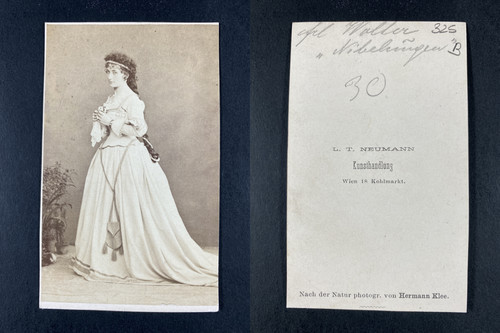 Frl Wolter
„Nibelungen"
325
B
30
L. T. NEUMANN
Kunsthandlung
Wien 18 Kohlmarkt.
Nach der Natur photogr. von Hermann Klee.